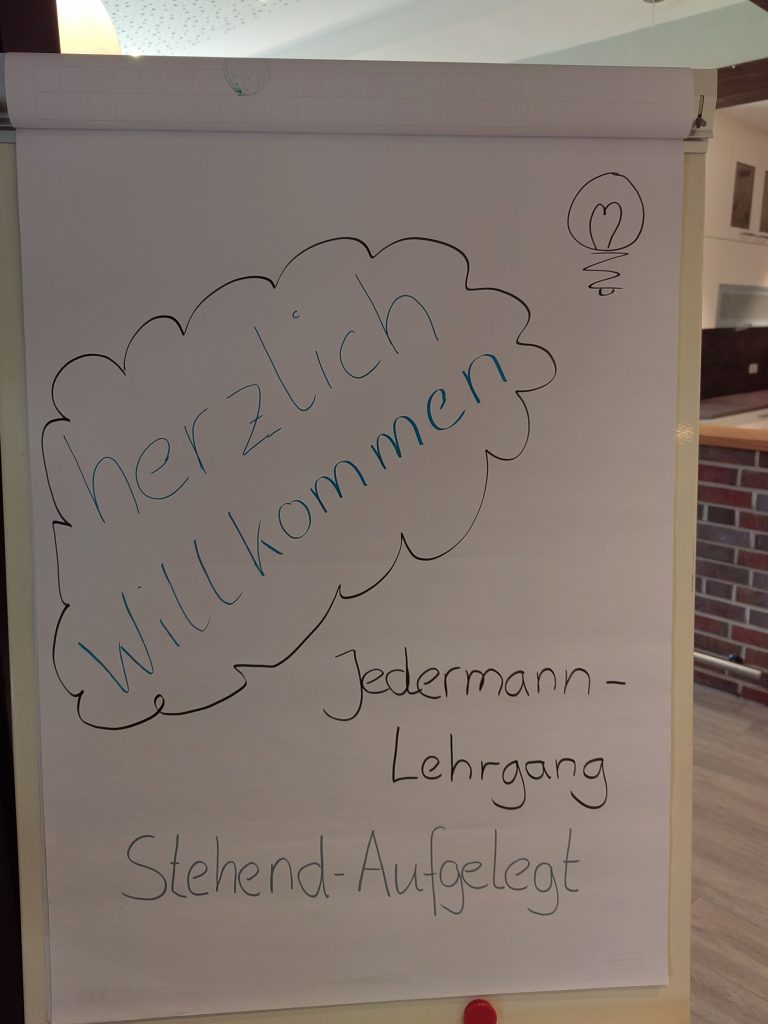 herzlich
Willkommen
Jedermann-
Lehrgang
Stehend-Aufgelegt